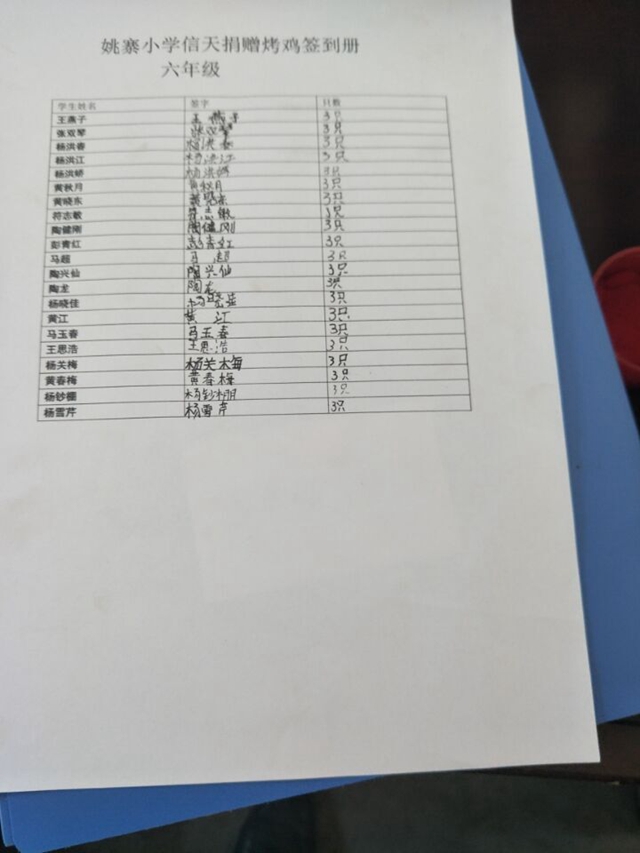 姚寨小学信天捐赠烤鸡签到册
六年级
学生姓名 签字 只数
王燕子 王燕子 3只
张双琴 张双琴 3只
杨洪春 杨洪春 3只
杨洪江 杨洪江 3只
杨洪娇 杨洪娇 3只
黄秋月 黄秋月 3只
黄晓东 黄晓东 3只
符志敏 符志敏 3只
陶健刚 陶健刚 3只
彭青红 彭青红 3只
马超 马超 3只
陶兴仙 陶兴仙 3只
陶龙 陶龙 3只
杨晓佳 3只
黄江 黄江 3只
马玉春 马玉春 3只
王思浩 王思浩 3只
杨关梅 杨关梅 3只
黄春梅 黄春梅 3只
杨钞棚 杨钞棚 3只
杨雪芹 杨雪芹 3只